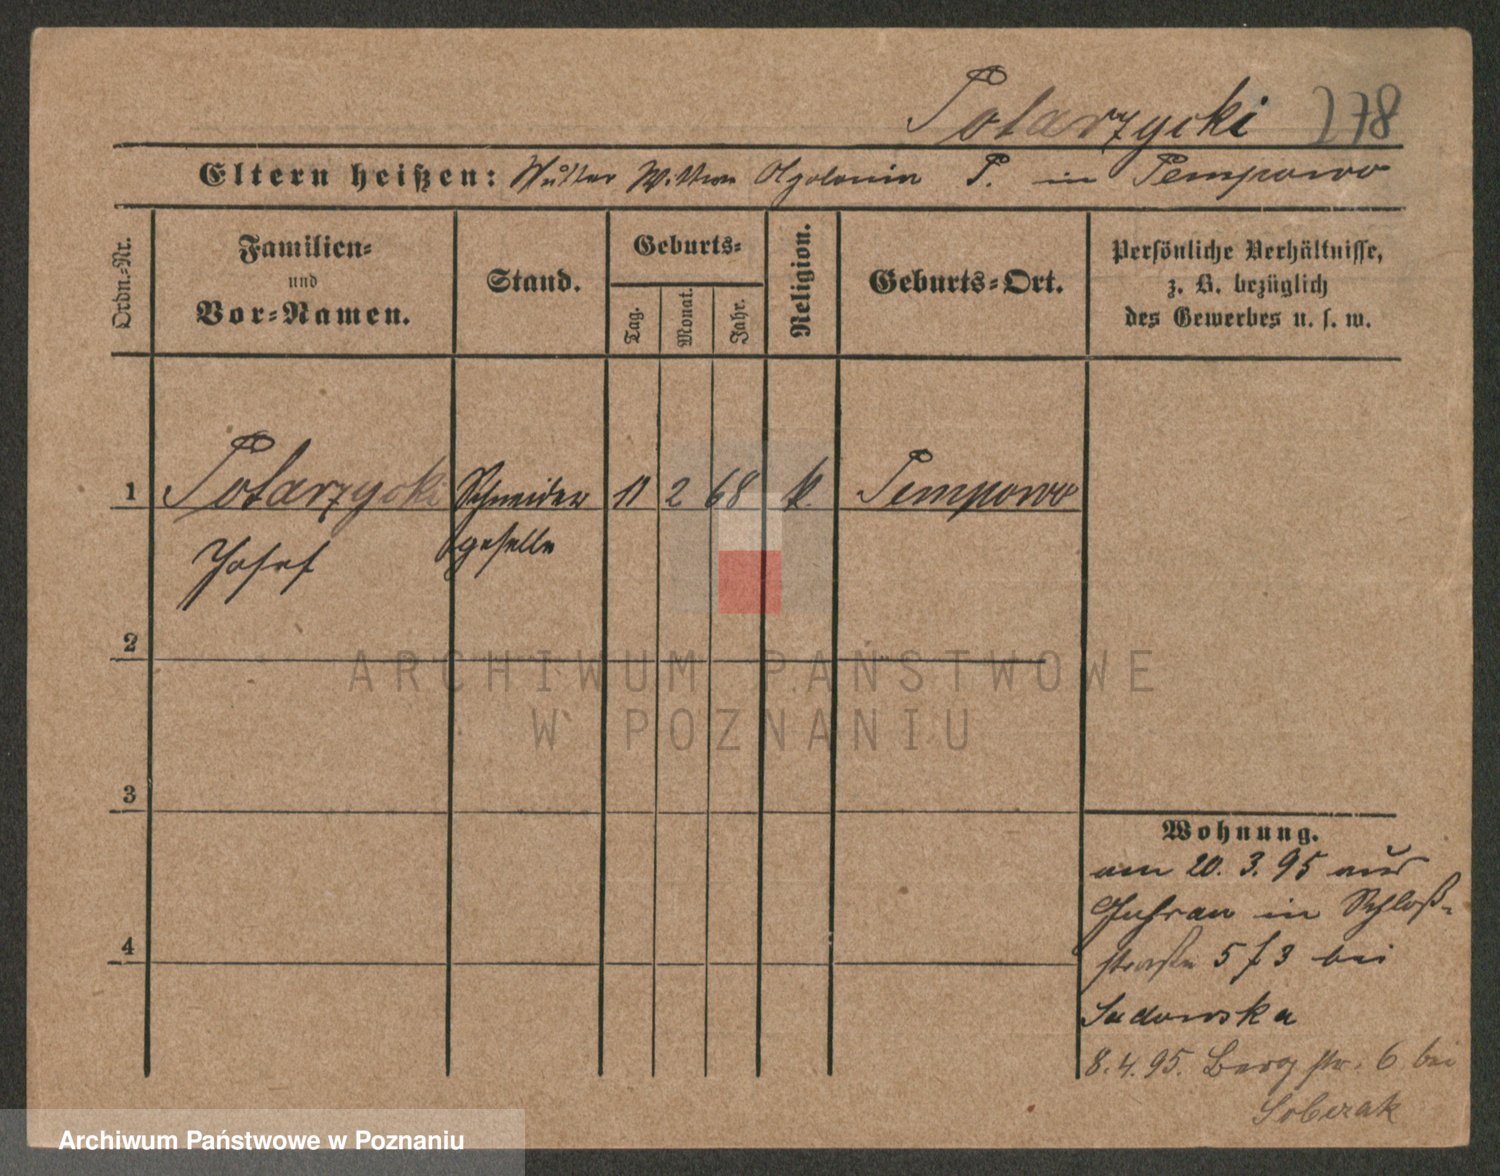 Potarzycki 278
Eltern heißen: Mutter Wittwe Apolonia P. in Pempowo
Ordn.-Nr.
Familien-
und
Vor-Namen.
Stand.
Geburts-
Tag.
Monat.
Jahr.
Religion.
Geburts-Ort.
Persönliche Verhältnisse,
z. B. bezüglich
des Gewerbes u. s. w.
1 Potarzycki Schneider 11 2 68 k. Pempowo
Josef geselle
2
3
4
Wohnung.
am 20. 3. 95 aus
Guhrau in Schloß-
straße 5 / 3 bei
Sadowska
8. 4. 95. Berg str. 6 bei
Sobczak
ARCHIWUM PAŃSTWOWE
W POZNANIU
Archiwum Państwowe w Poznaniu